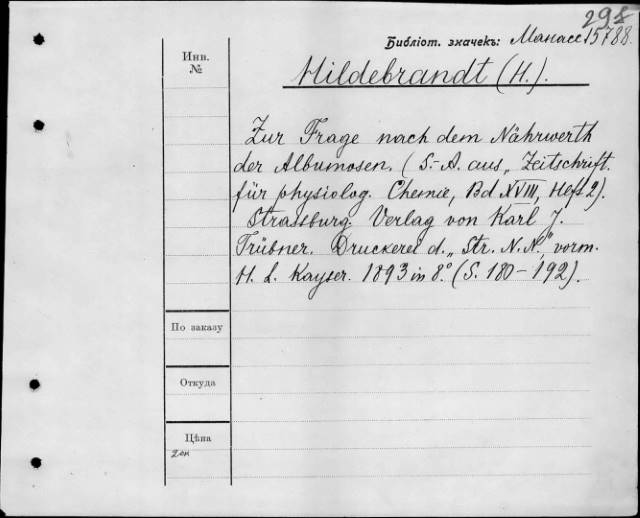 298
Библіот. значекъ: Манасс 15788.
Инв.
№
Hildebrandt (H.).
Zur Frage nach dem Nährwerth
der Albumosen. (S.-A. aus „Zeitschrift.
für physiolog. Chemie, Bd XVIII, Heft 2).
Strassburg. Verlag von Karl J.
Trübner. Druckerei d. „Str. N. N.", vorm.
H. L. Kayser. 1893 in 8.° (S. 180-192).
По заказу
Откуда
Цѣна